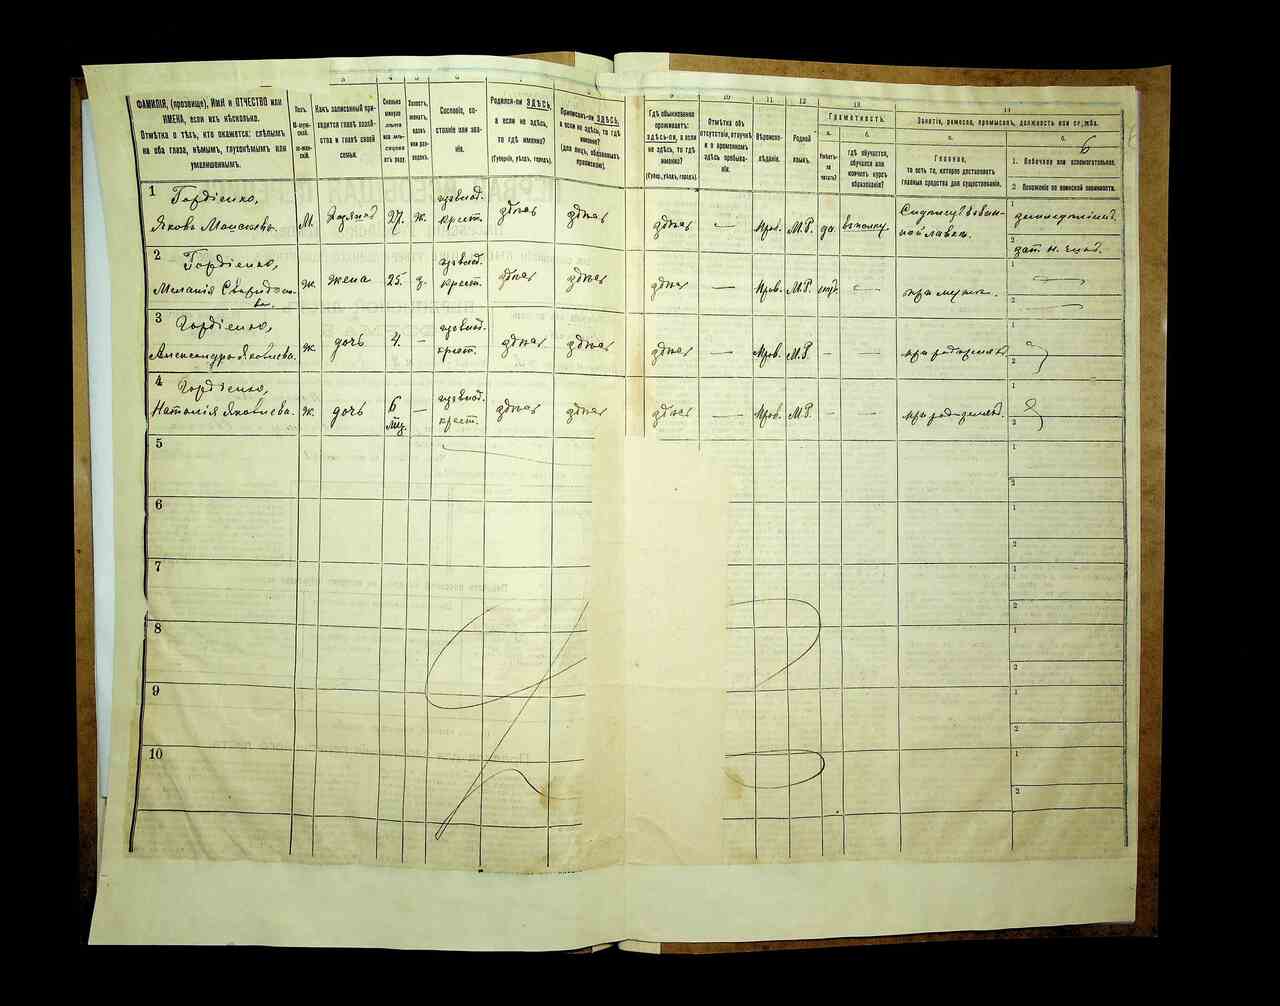 3 4 5 6 7 8
ФАМИЛІЯ, (прозвище), ИМЯ и ОТЧЕСТВО или
ИМЕНА, если ихъ нѣсколько.
Отмѣтка о тѣхъ, кто окажется: слѣпымъ
на оба глаза, нѣмымъ, глухонѣмымъ или
умалишеннымъ.
Полъ.
М-муж-
ской.
Ж-жен-
скій.
Какъ записанный при-
ходится главѣ хозяй-
ства и главѣ своей
семьи.
Сколько
минуло
лѣтъ
или мѣ-
сяцевъ
отъ роду.
Холостъ,
женатъ,
вдовъ
или раз-
веденъ.
Сословіе, со-
стояніе или зва-
ніе.
Родился-ли ЗДѢСЬ,
а если не здѣсь,
то гдѣ именно?
(Губернія, уѣздъ, городъ).
Приписанъ-ли ЗДѢСЬ,
а если не здѣсь, то гдѣ
именно?
(Для лицъ, обязанныхъ
припискою).
9 10 11 12 13 14
Гдѣ обыкновенно
проживаетъ:
здѣсь-ли, а если
не здѣсь, то гдѣ
именно?
(Губер., уѣздъ, городъ).
Отмѣтка объ
отсутствіи, отлучкѣ
и о временномъ
здѣсь пребыва-
ніи.
Вѣроиспо-
вѣданіе.
Родной
языкъ.
Грамотность.
а. б.
Умѣетъ-
ли
читать?
гдѣ обучается,
обучался или
кончилъ курсъ
образованія?
Занятіе, ремесло, промыселъ, должность или служба.
6
а. б.
Главное,
то есть то, которое доставляетъ
главныя средства для существованія.
1. Побочное или вспомогательное.
2 Положеніе по воинской повинности.
1 Гордіенко,
Яковъ Моисеевъ.
М. Хозяинъ 27. ж. крест. здѣсь здѣсь
здѣсь — Прав. М.Р. да. въ полку.
2 Гордіенко,
Меланія Свиридо-
ва.
ж. жена 25. з. крест. здѣсь здѣсь
здѣсь — Прав. М.Р. — при мужѣ.
3 Гордіенко,
Александра Яковлева.
ж. дочь 4. — крест. здѣсь здѣсь
здѣсь — Прав. М.Р. — —
4 Гордіенко,
Наталія Яковлева.
ж. дочь 6 — крест. здѣсь здѣсь
здѣсь — Прав. М.Р. — —
5
6
7
8
9
10